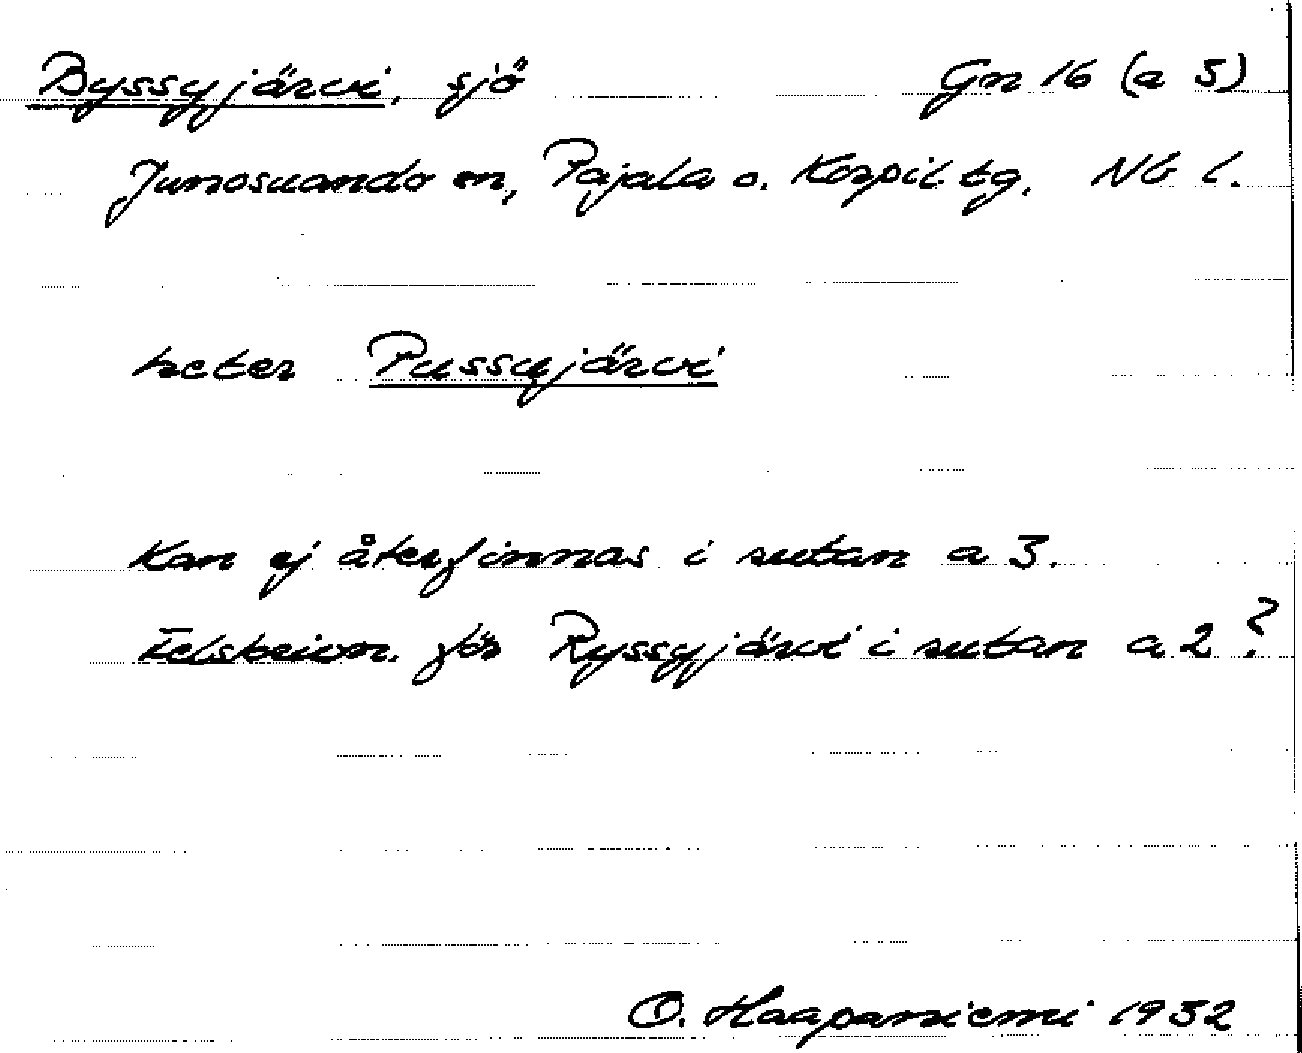 Byssyjärvi, sjö Gn 16 (a 5)
Junosuando sn, Pajala o. Korpil. tg. Nb l.
heter Pussyjärvi
Kan ej återfinnas i rutan a 3.
för Ryssyjärvi i rutan a 2?
O. Haapaniemi 1932